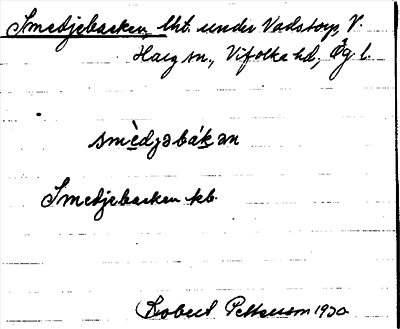 Smedjebacken, lht. under Vadstorp, V.
Harg sn., Vifolka hd, Ög l.
smèdjəbákən
Smedjebacken kb.
Robert Pettersson 1930